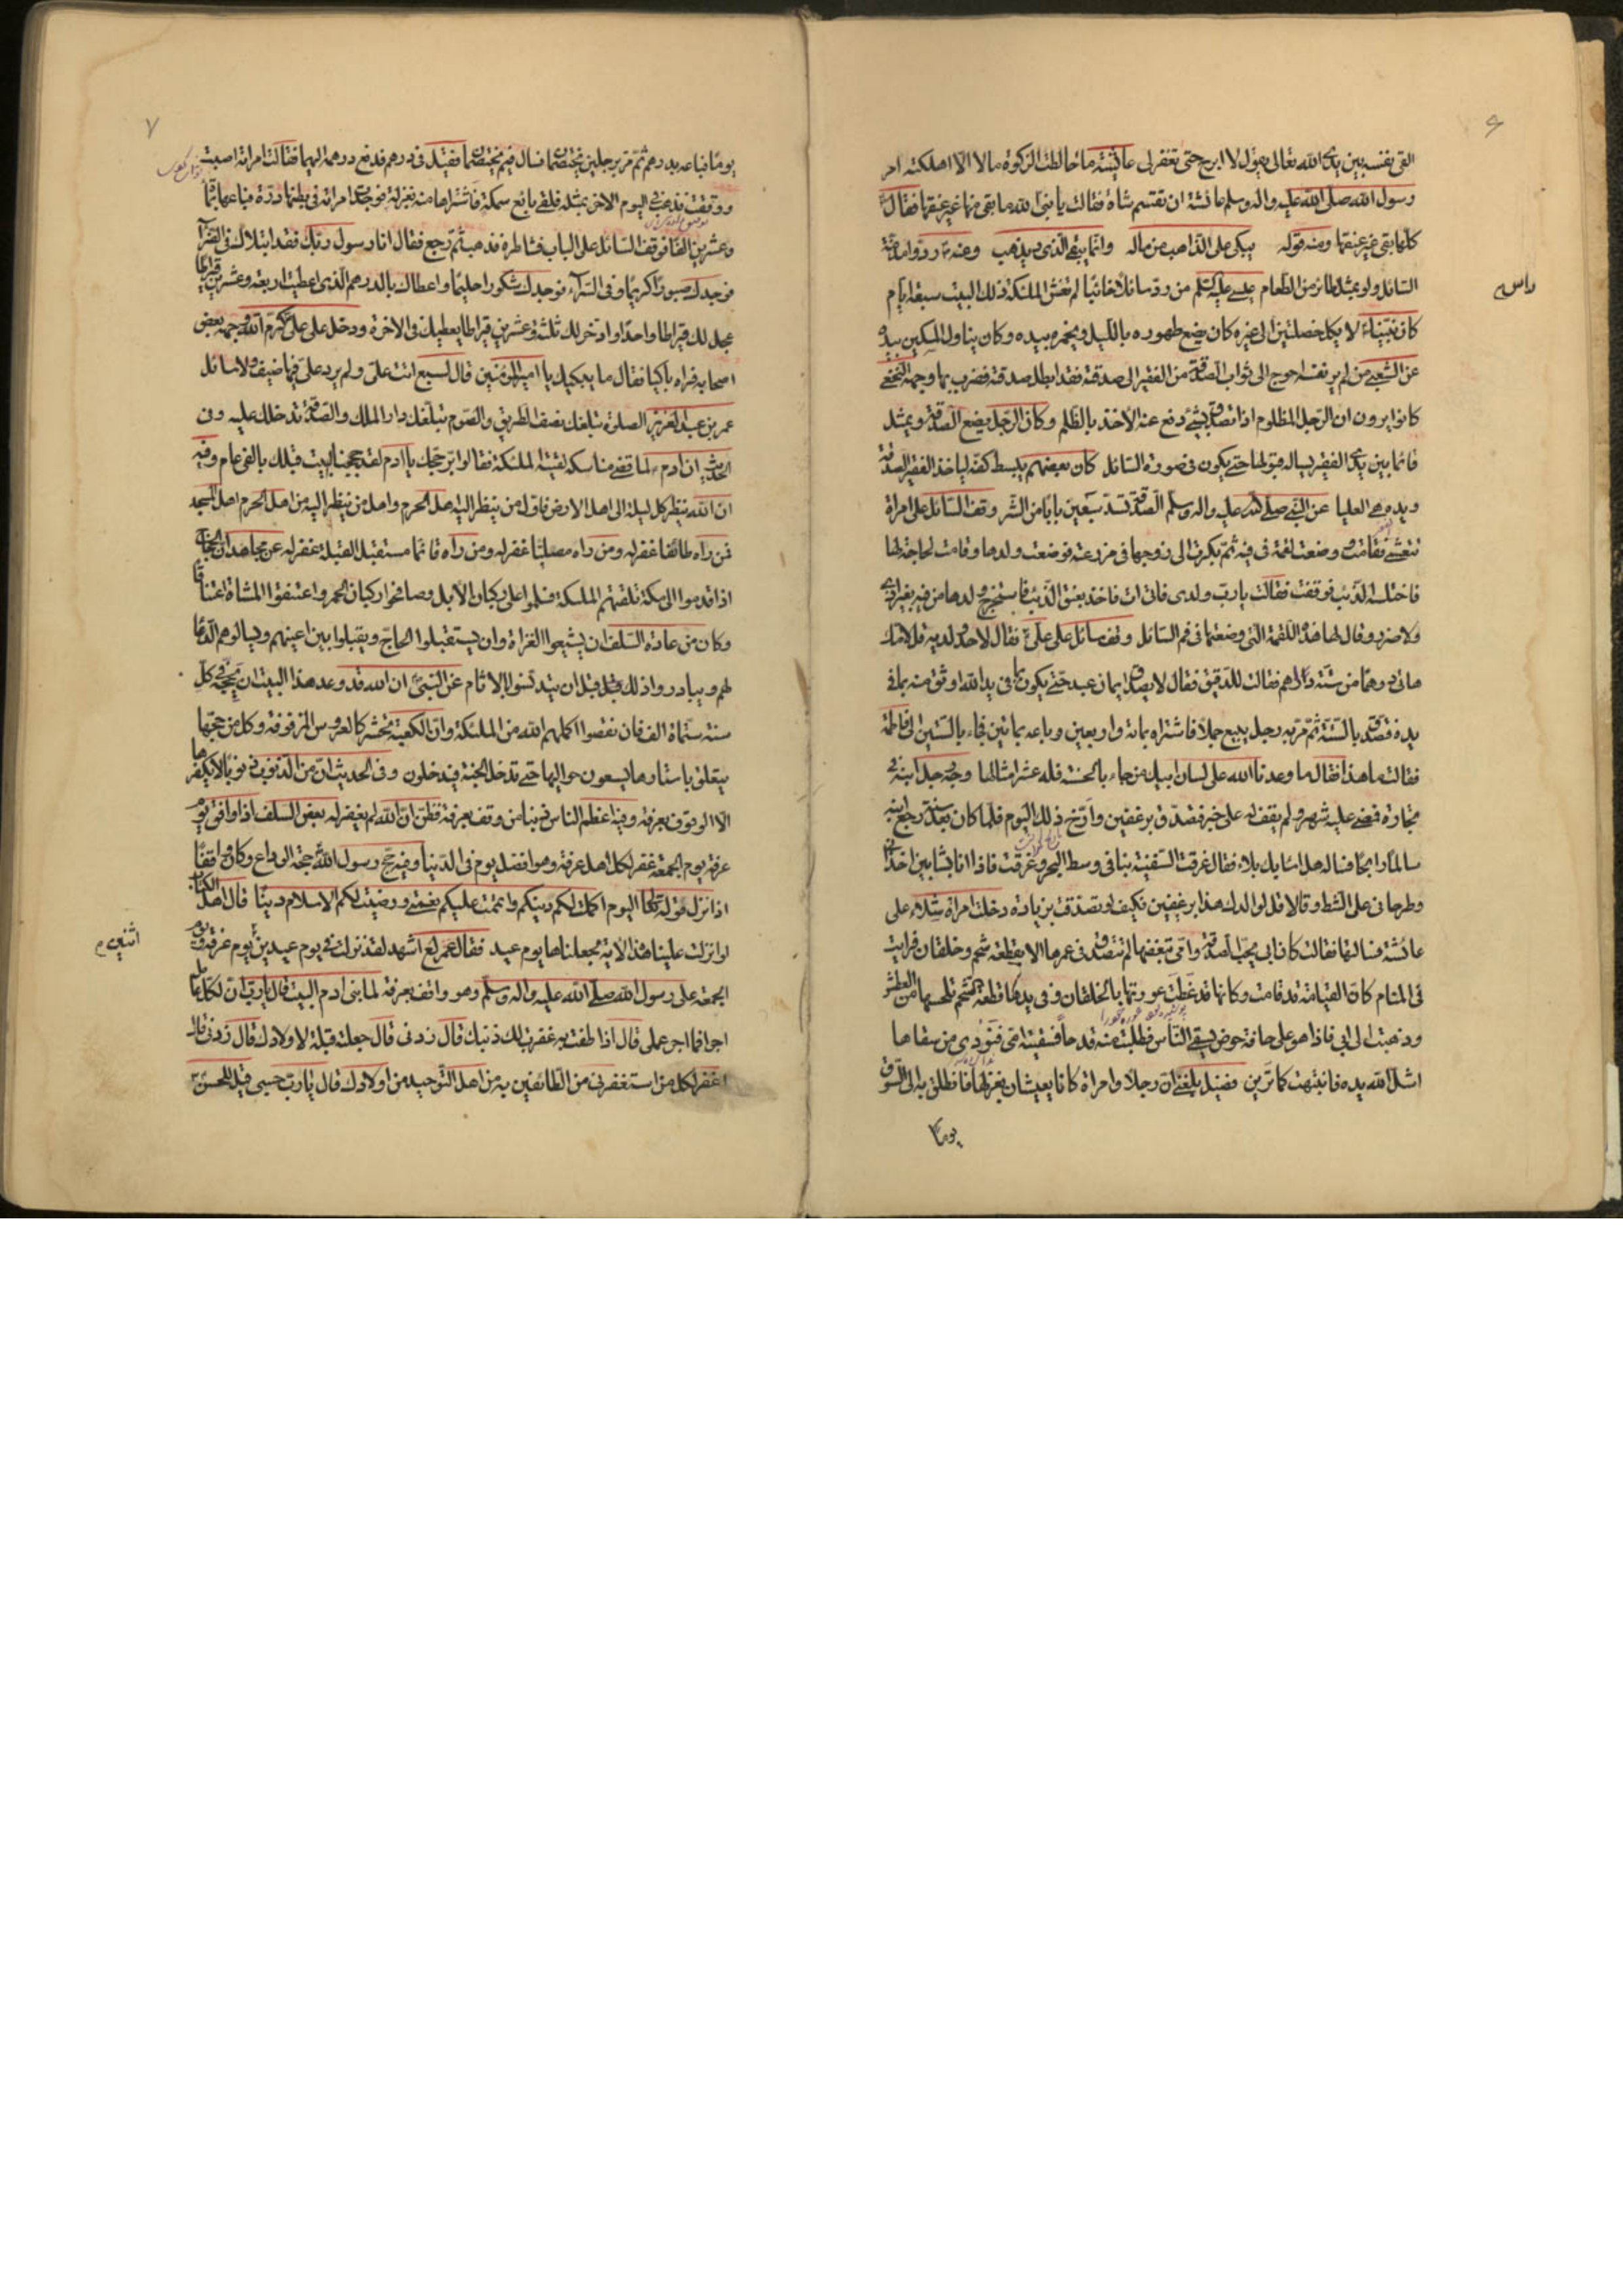 ۶
القى نفسه بين يدى الله تعالى يقول لا ابرح حتى تغفر لى عائشة ما خالطت الزكوة مالا الا اهلكته امر
رسول الله صلى الله عليه واله وسلم عائشة ان تقسم شاة فقالت يا نبى الله ما بقى منها غير عنقها فقال
كلها بقى غير عنقها ومنه قوله يبكى على الذاهب من ماله وانما يبقى الذى يذهب وعنه ردوا مذمة
السائل ولو بمثل طائر من الطعام عيسى عليه السلم من رد سائلا خائبا لم تغش الملئكة ذلك البيت سبعة ايام
كان نبينا لا يكل خصلتين الى غيره كان يضع طهوره بالليل ويخمره بيده وكان يناول المسكين بيده
عن الشعبى من لم ير نفسه احوج الى ثواب الصدقة من الفقير الى صدقته فقد ابطل صدقته فضرب بها وجهه النخعى
كانوا يرون ان الرجل المظلوم اذا تصدق بشئ دفع عنه الاخذ بالظلم وكان الرجل يضع الصدقة ويمثل
قائما بين يدى الفقير يساله قبولها حتى يكون فى صورة السائل كان بعضهم يبسط كفه لياخذ الفقير الصدقة
ويده هى العليا عن النبى صلى الله عليه واله وسلم الصدقة تسد سبعين بابا من الشر وقف السائل على امراة
تتعشى فقامت ووضعت لقمة فى فيه ثم بكرت الى زوجها فى مزرعته فوضعت ولدها وقامت لحاجة لها
فاختلسه الذئب فوقفت فقالت يا رب ولدى فاتى ات فاخذ بعنق الذئب فاستخرج ولدها من فيه بغير اذى
ولا ضرر وقال لها هذه اللقمة التى وضعتها فى فم السائل وقف سائل على على فقال لاحد ولديه قل لامك
هاتى درهما من ستة دراهم فقالت للدقيق فقال لا يصدق ايمان عبد حتى يكون بما فى يد الله اوثق منه بما فى
يده فتصدق بالستة ثم مر به رجل يبيع جملا فاشتراه بمائة واربعين وباعه بمائتين فجاء بالستين الى فاطمة
فقالت ما هذا فقال ما وعدنا الله على لسان ابيك من جاء بالحسنة فله عشر امثالها وجه رجل ابنه فى
تجارة فمضى عليه شهر ولم يقف له على خبر فتصدق برغيفين وارخ ذلك اليوم فلما كان بعد سنة رجع ابنه
سالما رابحا فساله هل اصابك بلاء فقال غرقت السفينة بنا فى وسط البحر وغرقت فاذا انا بشابين اخذانى
وطرحانى على الشط وقالا قل لوالدك هذا برغيفين فكيف لو تصدقت بزيادة دخلت امراة شلاء على
عائشة فسالتها فقالت كان ابى يحب الصدقة وامى تبغضها لم تتصدق فى عمرها الا بقطعة شحم وخلقان فرايت
فى المنام كان القيامة قد قامت وكانها قد غطت عورتها بالخلقان وفى يدها قطعة الشحم تلحسها من العطش
وذهبت الى ابى فاذا هو على حافة حوض يسقى الناس فطلبت منه قدحا فسقيته امى فنودى من سقاها
اشل الله يده فانتبهت كما ترين فضيل بلغنى ان رجلا وامراة كانا يعيشان بغزلها فانطلق به الى السوق
يوما
راس
۷
يوما فباعه بدرهم ثم مر برجلين يختصمان فسال فيم يختصمان فقيل فى درهم فدفع درهمه اليهما فقالت امراته اصبت
ووفقت فذهب فى اليوم الاخر بمثله فلقى بائع سمكة فاشتراها منه بغزله فوجدت امراته فى بطنها درة فباعها بمائة
وعشرين الفا فوقف السائل على الباب فشاطره فذهب ثم رجع فقال انا رسول ربك فقد ابتلاك فى الضراء
فوجدك صبورا كريما وفى السراء فوجدك شكورا حليما واعطاك بالدرهم الذى اعطيت اربعة وعشرين قيراطا
عجل لك قيراطا واحدا وادخر لك ثلثة وعشرين قيراطا يعطيك فى الاخرة ودخل على على كرم الله وجهه بعض
اصحابه فراه باكيا فقال ما يبكيك يا امير المؤمنين قال لسبع اتت على ولم يرد على فيها ضيف ولا سائل
عمر بن عبد العزيز الصلوة تبلغك نصف الطريق والصوم تبلغك دار الملك والصدقة تدخلك عليه وفى
الحديث ان ادم لما قضى مناسكه لقيته الملئكة فقالوا بر حجك يا ادم لقد حججنا البيت قبلك بالفى عام وفيه
ان الله ينظر كل ليلة الى اهل الارض فاول من ينظر اليه اهل الحرم واول من ينظر اليه من اهل الحرم اهل المسجد
فمن راه طائفا غفر له ومن راه مصليا غفر له ومن راه قائما مستقبل القبلة غفر له عن مجاهد ان الحجاج
اذا قدموا الى مكة تلقتهم الملئكة فسلموا على ركبان الابل وصافحوا ركبان الحمر واعتنقوا المشاة اعتناقا
وكان من عادة السلف ان يشيعوا الغزاة وان يستقبلوا الحاج ويقبلوا بين اعينهم ويسالوهم الدعا
لهم ويبادروا ذلك قبل ان يتدنسوا بالاثام عن النبى ان الله قد وعد هذا البيت ان يحجه فى كل
سنة ستماة الف فان نقصوا اكملهم الله من الملئكة وان الكعبة تحشر كالعروس المزفوفة وكل من حجها
يتعلق باستارها يسعون حواليها حتى تدخل الجنة فيدخلون وفى الحديث ان من الذنوب ذنوبا لا يكفرها
الا الوقوف بعرفة وفيه اعظم الناس ذنبا من وقف بعرفة فظن ان الله لم يغفر له بعض السلف اذا وافق يوم
عرفة يوم الجمعة غفر لكل اهل عرفة وهو افضل يوم فى الدنيا وفيه حج رسول الله حجة الوداع وكان واقفا
اذ انزل قوله تعالى اليوم اكملت لكم دينكم واتممت عليكم نعمتى ورضيت لكم الاسلام دينا قال اهل الكتاب
لو انزلت علينا هذه الاية لجعلناها يوم عيد فقال عمر اشهد لقد نزلت فى يوم عيدين يوم عرفة ويوم
الجمعة على رسول الله صلى الله عليه واله وسلم وهو واقف بعرفة لما بنى ادم البيت قال يا رب ان لكل عامل
اجرا فما اجر عملى قال اذا طفت به غفرت لك ذنبك قال زدنى قال جعلته قبلة لاولادك قال زدنى قال
اغفر لكل من استغفرنى من الطائفين به من اهل التوحيد من اولادك قال يا رب حسبى قيل للحسن